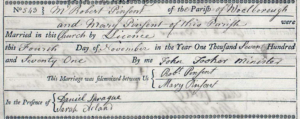 No 343 } Mr Robert Pinsent of the Parish of Wolborough
and Mary Pinsent of this Parish were
Married in this Church by Licence
this Fourth Day of November in the Year One Thousand Seven Hundred
and Seventy One By me John Tooker Minister
This Marriage was solemnized between Us { Robt Pinsent
Mary Pinsent
In the Presence of { Daniel Sprague
Sarah